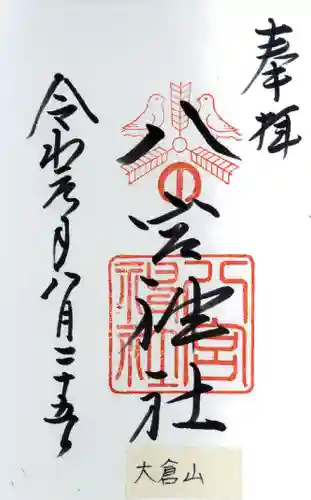 奉拝
八宮神社
八宮神社
令和元年八月二十五日
大倉山